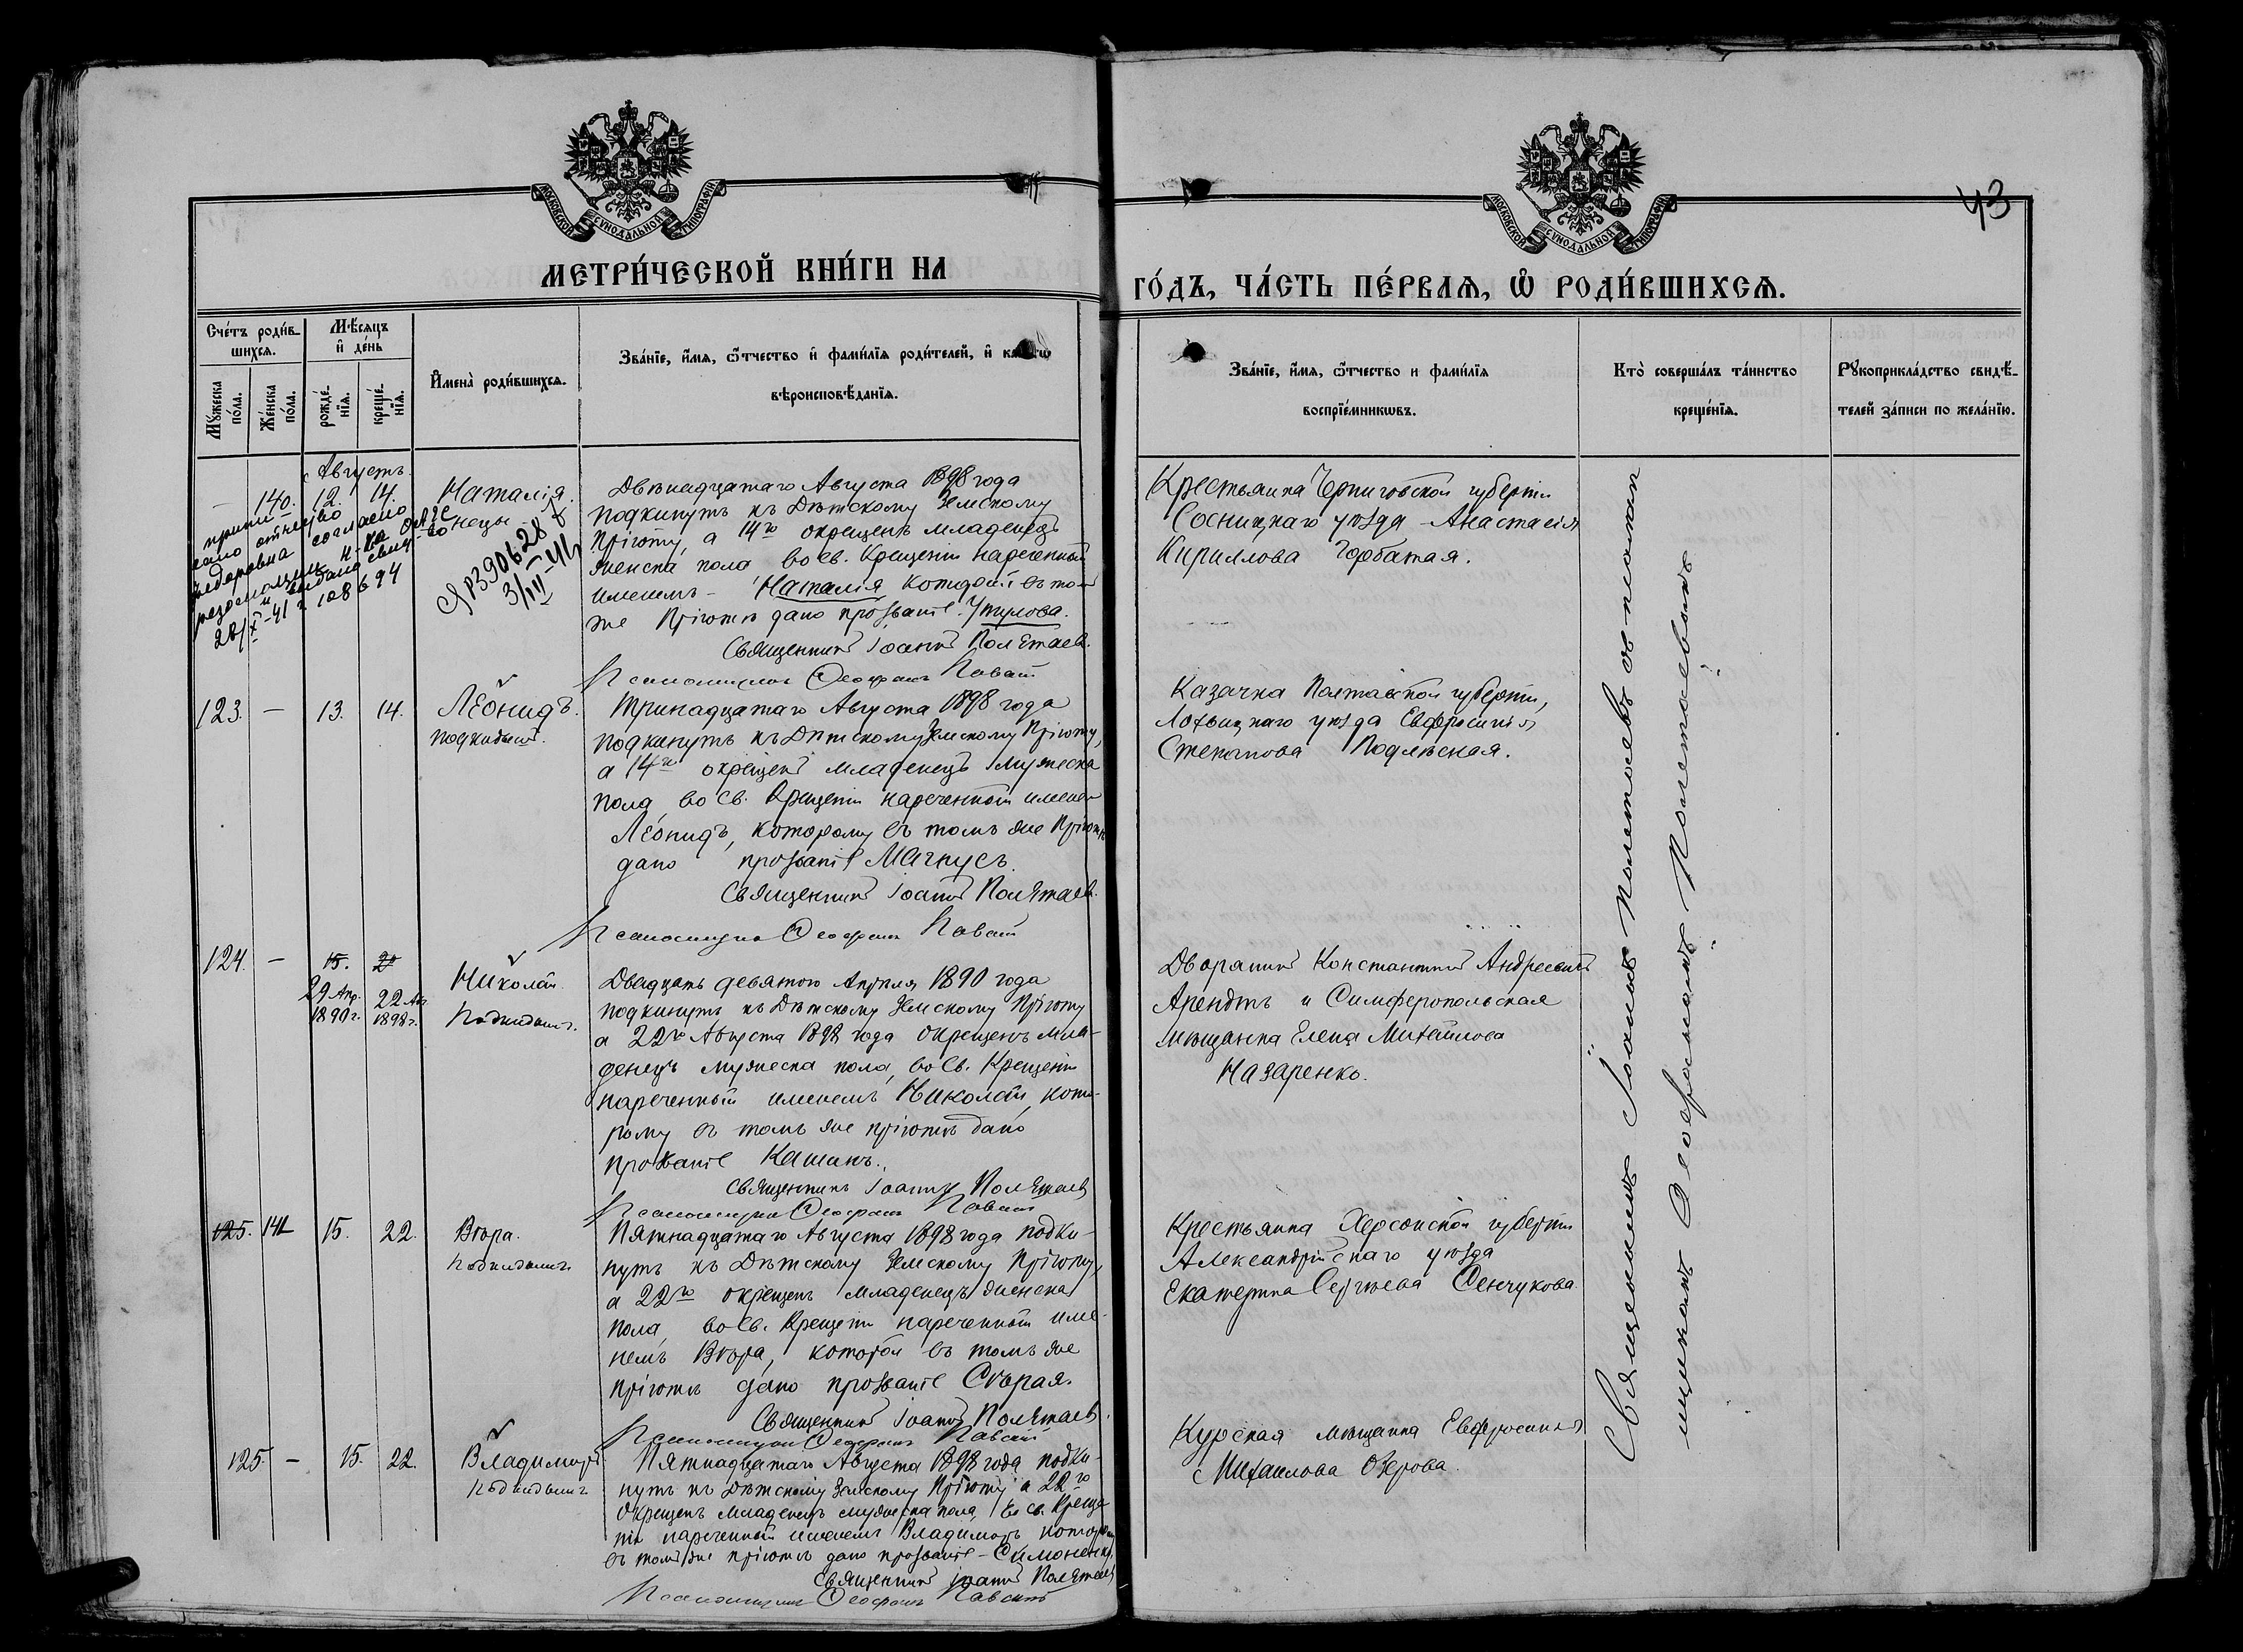 МОСКОВСКОЙ СѴНОДАЛЬНОЙ ТИПОГРАФІИ
МОСКОВСКОЙ СѴНОДАЛЬНОЙ ТИПОГРАФІИ
43
МЕТРИ́ЧЕСКОЙ КНИ́ГИ НА
ГО́ДЪ, ЧА́СТЬ ПЕ́РВАѦ, Ѡ РОДИ́ВШИХСѦ.
Сче́тъ роди́в-
шихсѧ.
Мѣ́сѧцъ
и҆ де́нь
Мꙋ́жеска по́ла.
Же́нска по́ла.
рожде́-
нїѧ.
креще́-
нїѧ.
И҆мена̀ роди́вшихсѧ.
Зва́нїе, и҆́мѧ, ѻ҆́тчество и҆ фами́лїѧ роди́телей, и҆
вѣроисповѣ́данїѧ.
Зва́нїе, и҆́мѧ, ѻ҆́тчество и фами́лїѧ
воспрїе́мникѡвъ.
Кто̀ соверша́лъ та́инство
креще́нїѧ.
Рꙋкоприкла́дство свидѣ́-
телей за́писи по жела́нїю.
Августъ.
— 140. 12. 14. Наталія.
отчество
согласно
28/X-41 г 108694
3/III-41
Двѣнадцатаго Августа 1898 года
подкинутъ къ Дѣтскому Земскому
Пріюту, а 14го окрещенъ младенецъ
женска пола во Св. Крещеніи нареченный
именемъ – Наталія, которой въ томъ
же Пріютѣ дано прозваніе
Священникъ Іоаннъ Полѣтаевъ.
Псаломщикъ Ѳеофанъ
Крестьянка Черниговской губерніи
Сосницкаго уѣзда – Анастасія
Кириллова Горбатая.
123. — 13. 14. Леонидъ.
подкидышъ.
Тринадцатаго Августа 1898 года
подкинутъ къ Дѣтскому Земскому Пріюту,
а 14го окрещенъ младенецъ мужеска
пола, во Св. Крещеніи нареченный именемъ
Леонидъ, которому въ томъ же Пріютѣ
дано прозваніе Магнусъ.
Священникъ Іоаннъ Полѣтаевъ.
Псаломщикъ Ѳеофанъ
Казачка Полтавской губерніи,
Лохвицкаго уѣзда Евфросинія
Степанова Подлѣсная.
124. — 15.
29 Апр. 22 Авг.
1890 г. 1898 г.
Николай.
Подкидышъ.
Двадцать девятого Апрѣля 1890 года
подкинутъ къ Дѣтскому Земскому Пріюту
а 22го Августа 1898 года окрещенъ мла-
денецъ мужеска пола, во Св. Крещеніи
нареченный именемъ Николай, кото-
рому въ томъ же пріютѣ дано
прозваніе Кашинъ.
Священникъ Іоаннъ Полѣтаевъ
Псаломщикъ Ѳеофанъ
Дворянинъ Константинъ Андреевичъ
Арендтъ и Симферопольская
мѣщанка Елена Михайлова
Назаренко.
125. 141 15. 22. Вѣра.
подкидышъ
Пятнадцатаго Августа 1898 года подки-
нутъ къ Дѣтскому Земскому Пріюту,
а 22го окрещенъ младенецъ женска
пола, во Св. Крещеніи нареченный име-
немъ Вѣра, которой въ томъ же
пріютѣ дано прозваніе Сѣрая.
Священникъ Іоаннъ Полѣтаевъ.
Псаломщикъ Ѳеофанъ
Крестьянка Херсонской губерніи
Александрійскаго уѣзда
Екатерина Сергѣева Сенчукова.
125 — 15. 22. Владиміръ
подкидышъ
Пятнадцатаго Августа 1898 года подки-
нутъ къ Дѣтскому Земскому Пріюту а 22го
окрещенъ младенецъ мужеска пола, во св. Креще-
ніи нареченный именемъ Владиміръ которому
въ томъ же пріютѣ дано прозваніе – Симоненко.
Священникъ Іоаннъ Полѣтаевъ
Псаломщикъ Ѳеофанъ
Курская мѣщанка Евфросинія
Михайлова Озерова.
Священникъ Іоаннъ Полѣтаевъ съ псалом-
щикомъ Ѳеофаномъ